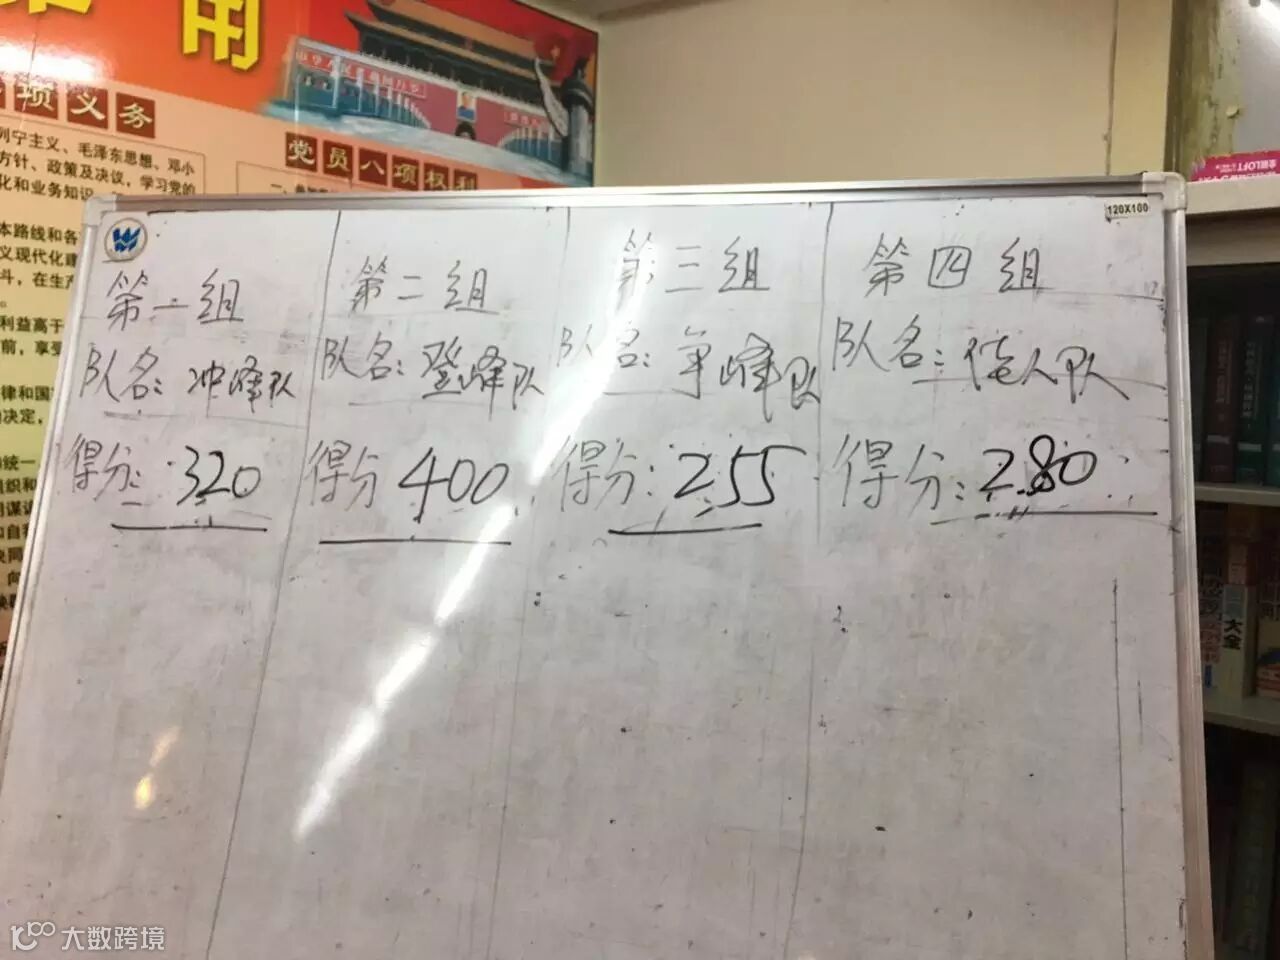 用
项义务
列宁主义、毛泽东思想、邓小
方针、政策及决议，学习党的
化和业务知识
本路线和各
义现代化建
斗，在生产
利益高于
前，享受
律和国
决定，
党员八项权利
120X100
第一组
队名：冲峰队
得分：320
第二组
队名：登峰队
得分 400
第三组
队名：争峰队
得分：255
第四组
队名：人队
得分：280
大全
大数跨境